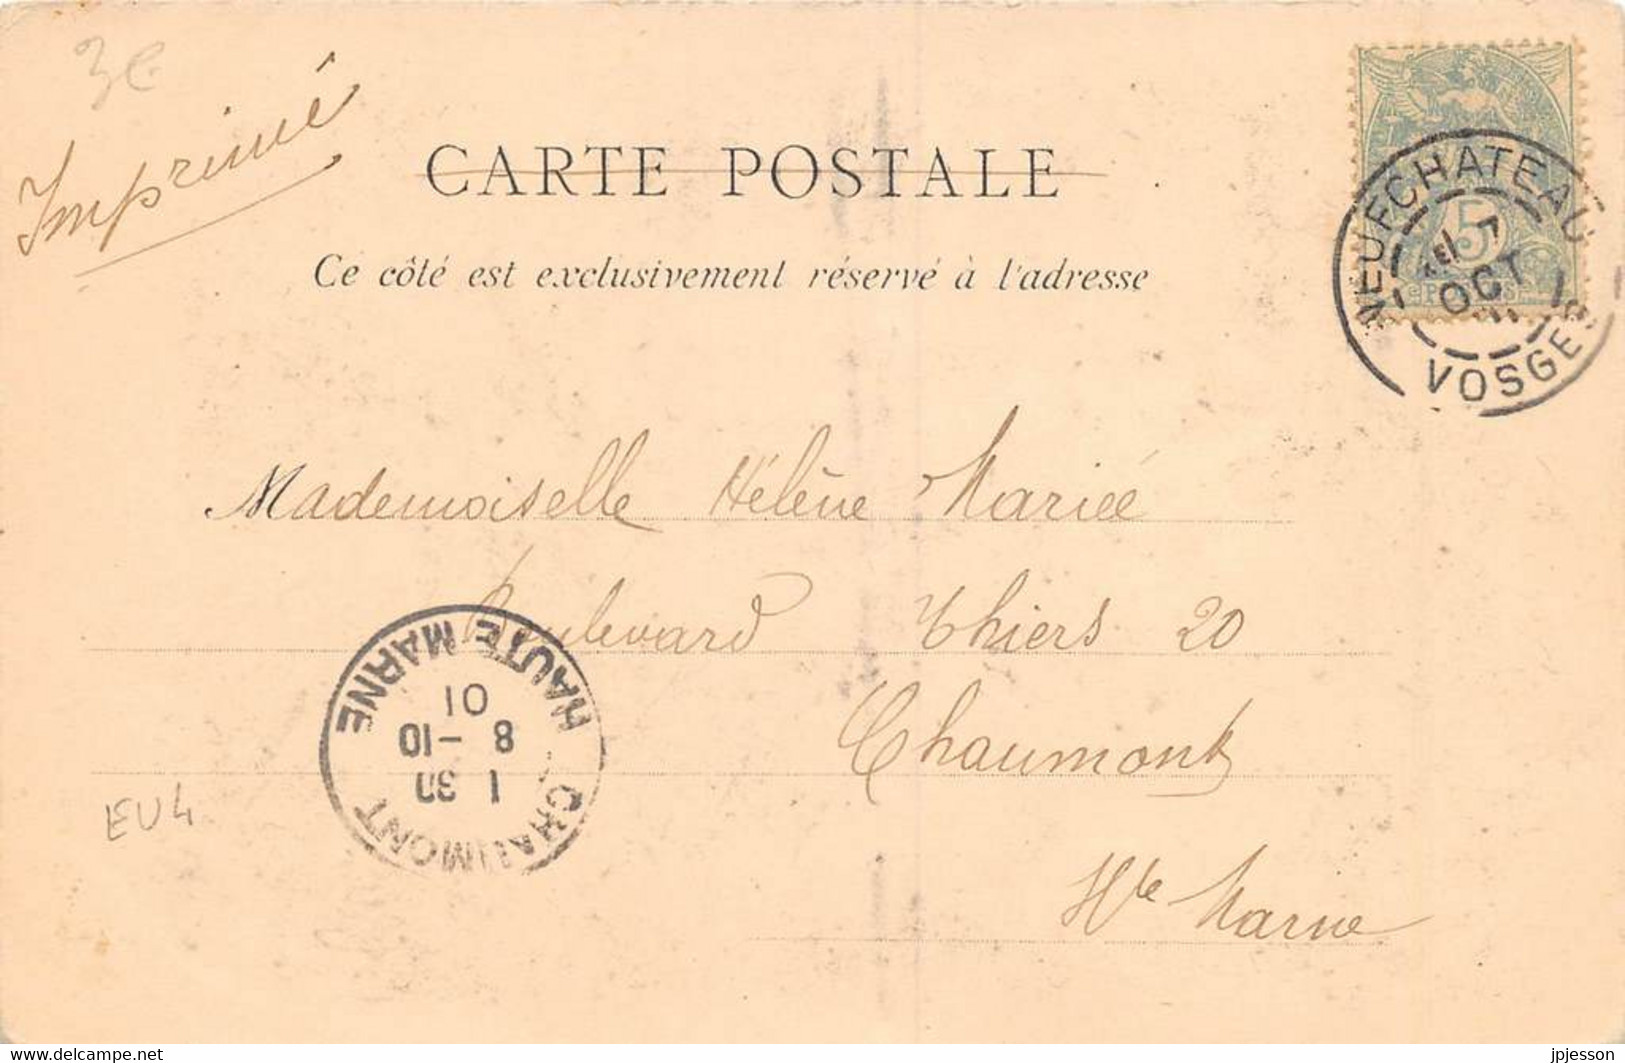 3e
Imprimé
CARTE POSTALE
Ce côté est exclusivement réservé à l'adresse
NEUFCHATEAU
7
OCT
VOSGES
5
Mademoiselle Hélène Mariée
Boulevard Thiers 20
Chaumont
Hte Marne
CHAUMONT
1 30
8 -10
01
HAUTE MARNE
EU4
www.delcampe.net
jpjesson